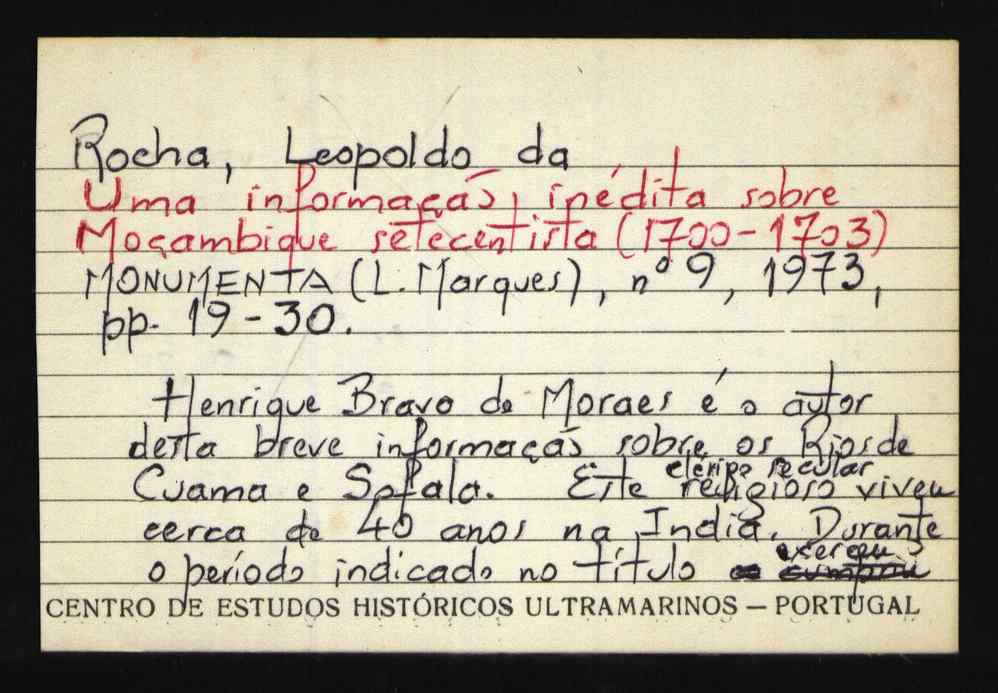 Rocha, Leopoldo da
Uma informação inédita sobre
Moçambique setecentista (1700-1703)
MONUMENTA (L. Marques), nº 9, 1973,
pp. 19-30.
Henrique Bravo de Moraes é o autor
desta breve informação sobre os Rios de
Cuama e Sofala. Este religioso viveu
clérigo secular
cerca de 40 anos na India. Durante
o período indicado no título
exerceu
CENTRO DE ESTUDOS HISTÓRICOS ULTRAMARINOS — PORTUGAL